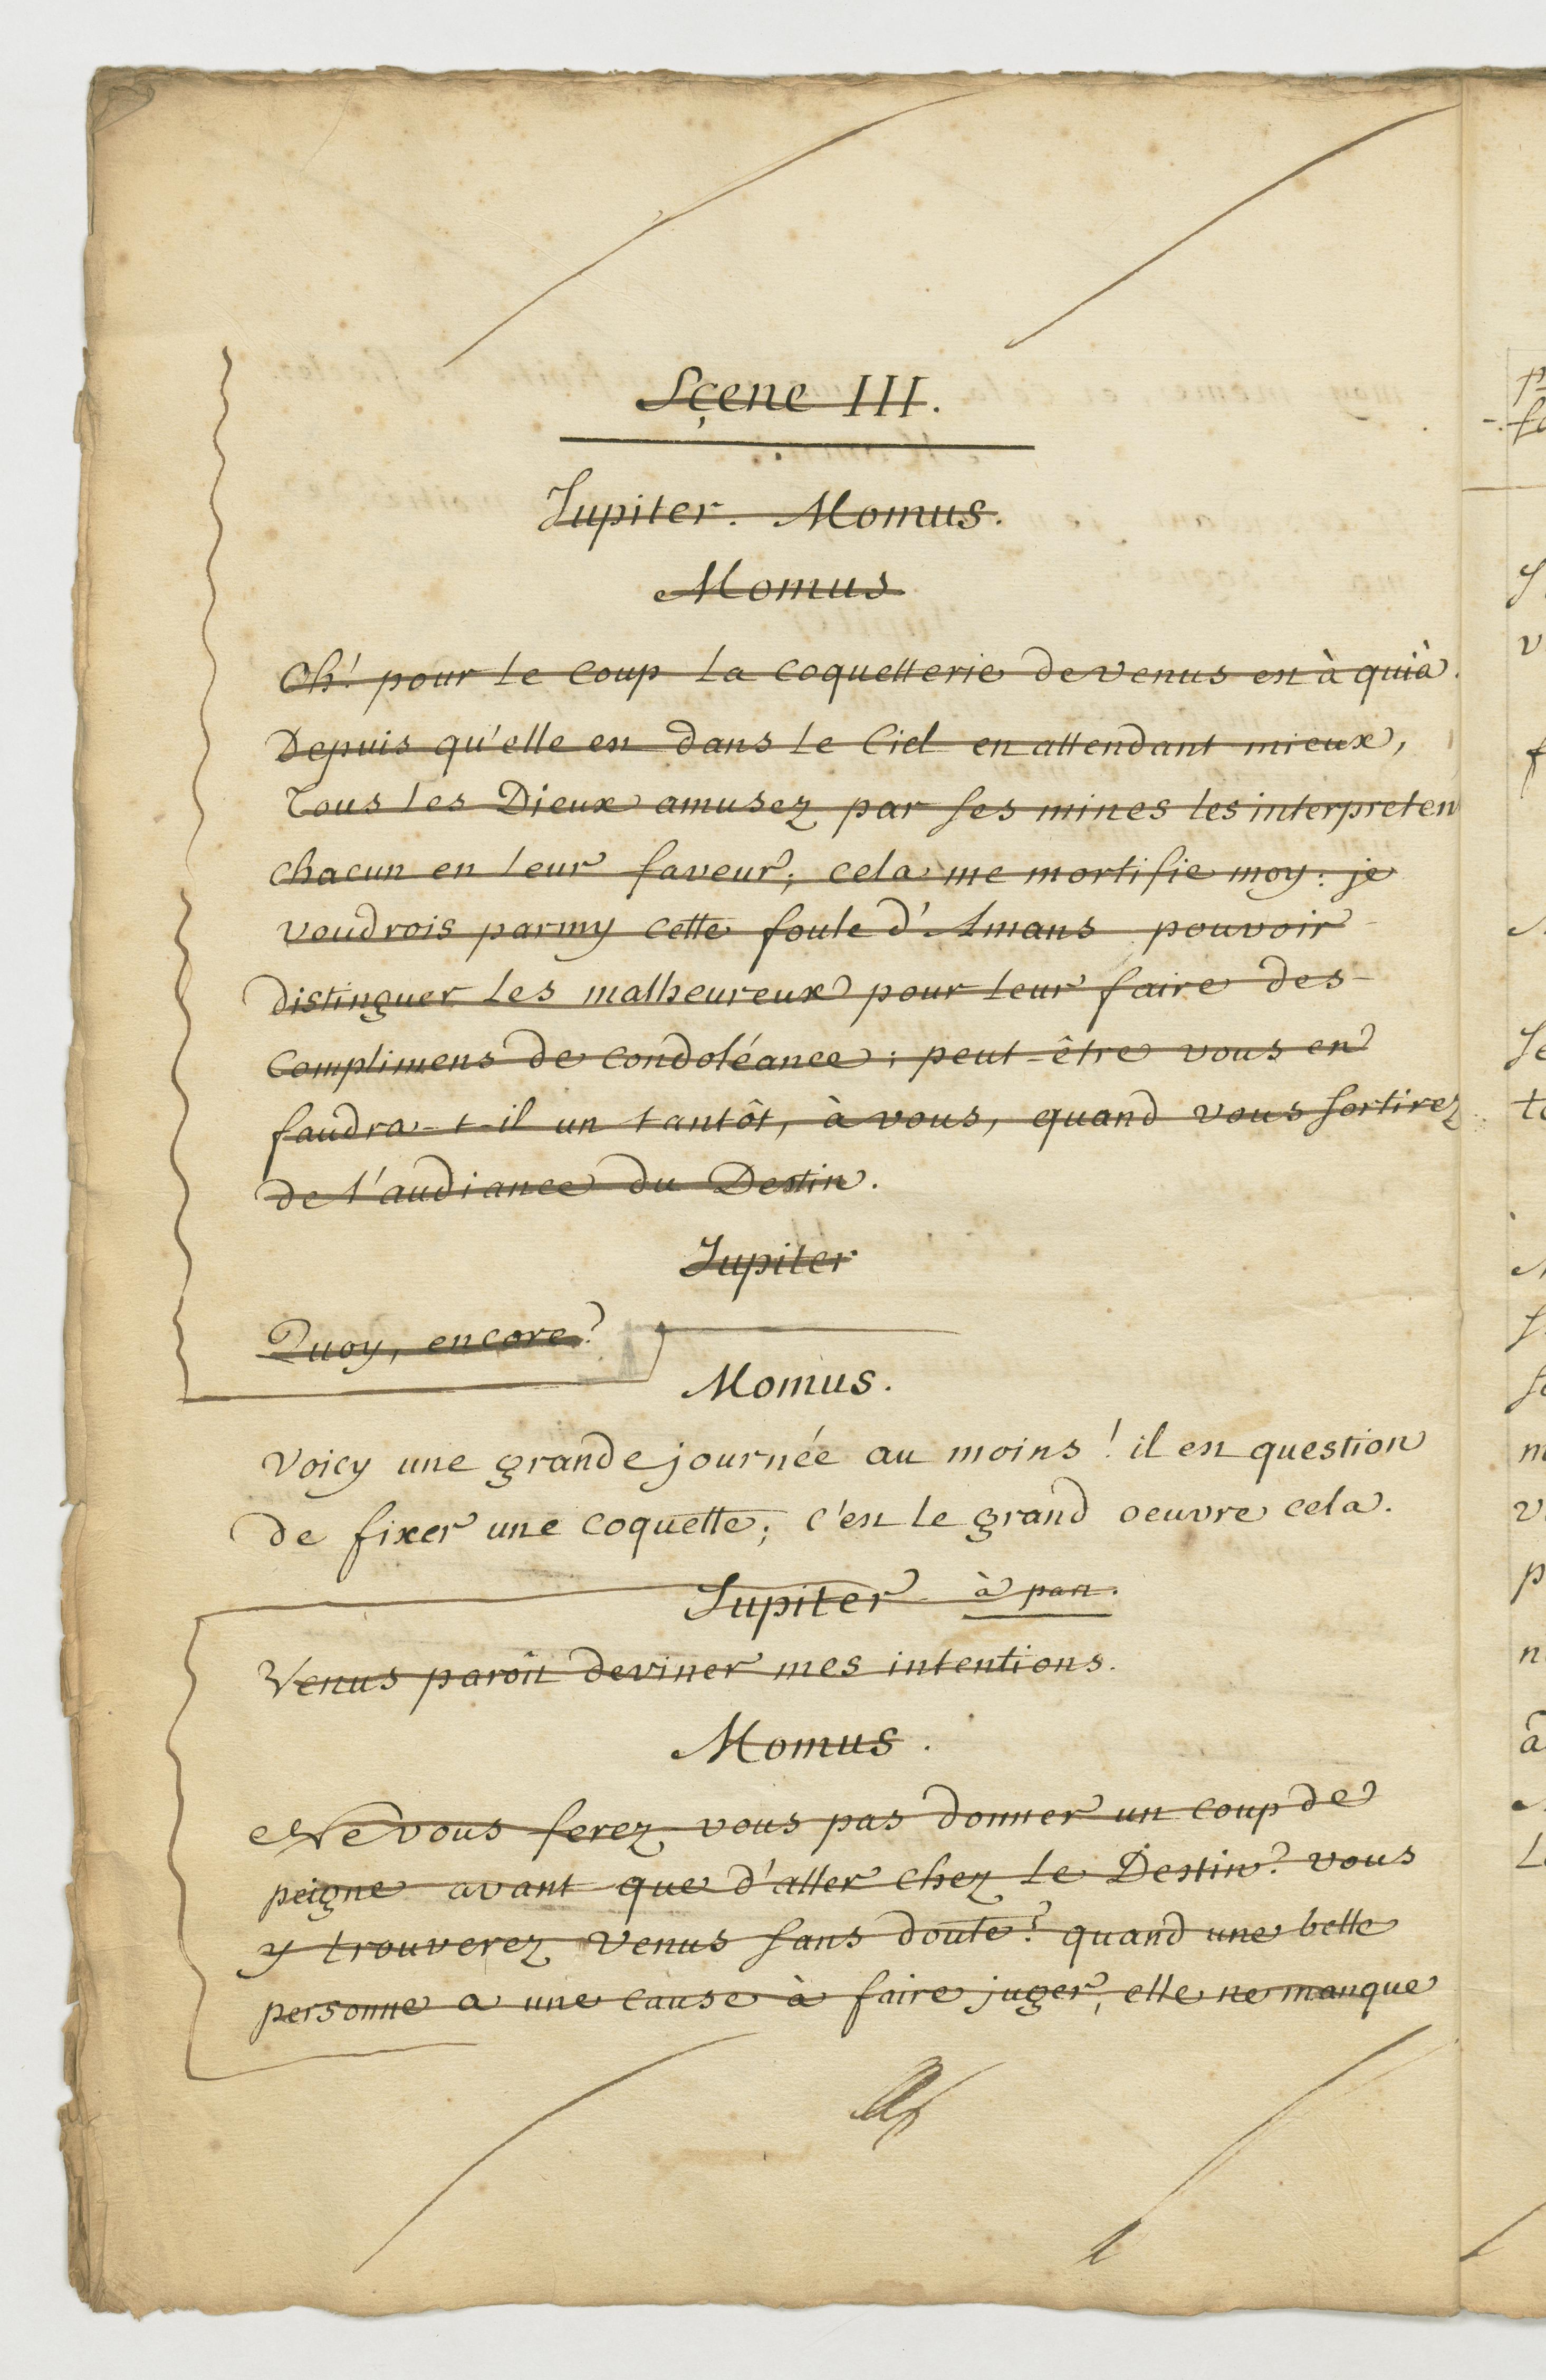 Sçene III.
Jupiter. Momus.
Momus
Oh! pour le coup la coquetterie de venus est à quia.
Depuis qu'elle est dans le Ciel en attendant mieux,
Tous les Dieux amusez par ses mines les interpreten
chacun en leur faveur; cela me mortifie moy: je
voudrois parmy cette foule d'Amans pouvoir
distinguer les malheureux pour leur faire des
complimens de condoléance: peut-être vous en
faudra-t-il un tantôt, à vous, quand vous sortirez
de l'audiance du Destin.
Jupiter
Quoy, encore?
Momus.
Voicy une grande journée au moins! il est question
de fixer une coquette; c'est le grand oeuvre cela.
Jupiter à part.
Venus paroît deviner mes intentions.
Momus.
Ne vous ferez vous pas donner un coup de
peigne avant que d'aller chez le Destin? vous
y trouverez Venus sans doute? quand une belle
personne a une cause à faire juger, elle ne manque